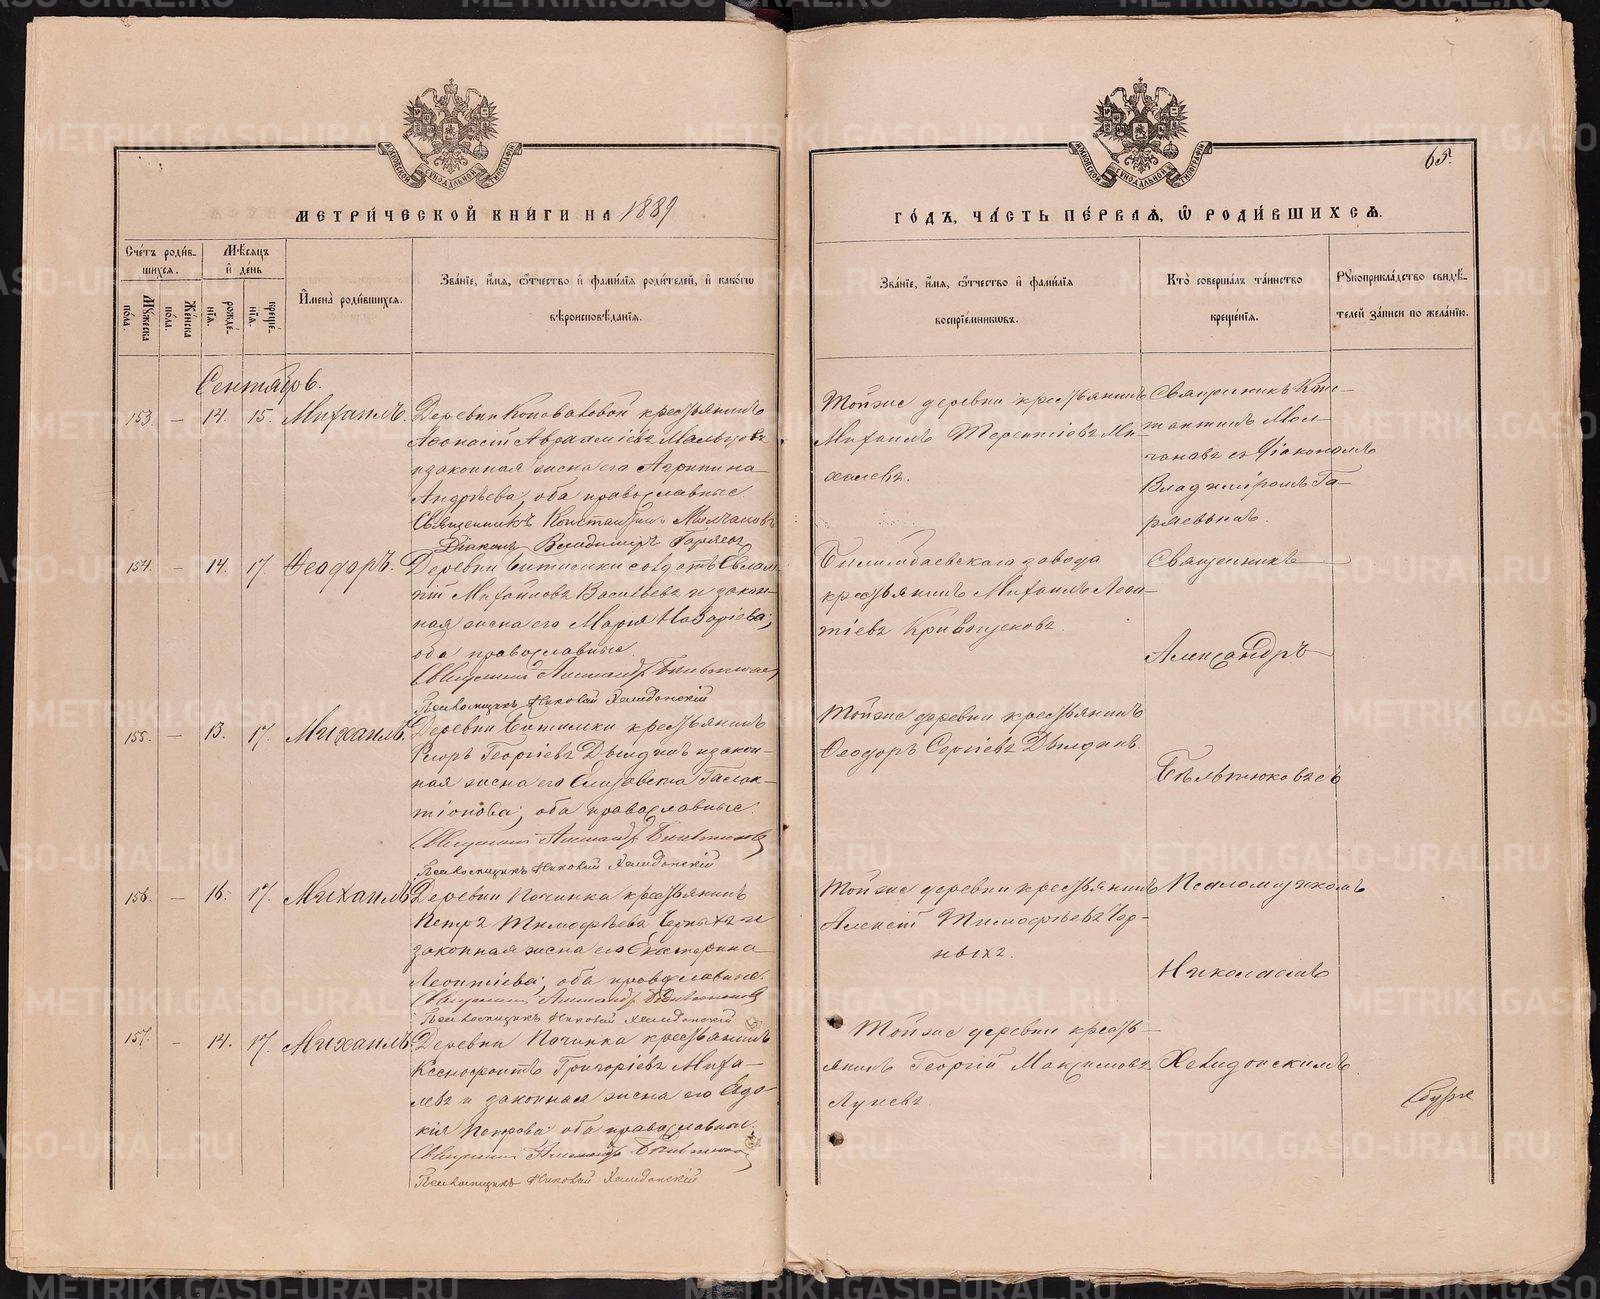 МЕТРИ́ЧЕСКОЙ КНИ́ГИ НА 1889
Сче́тъ роди́в-
шихся.
Мѣ́сяцъ
и҆ де́нь
Мꙋ́жеска
по́ла.
Же́нска
по́ла.
рожде-
нїя.
креще́-
нїя.
И҆мена̀ роди́вшихся.
Зва́нїе, и҆́мя, ѻ҆́тчество и҆ фами́лїя роди́телей, и҆ како́гѡ
вѣроисповѣ́данїя.
Сентябрь.
153. — 14. 15. Михаилъ.
Деревни Коноваловой крестьянинъ
Афонасій Авраамiевъ Мальцовъ
и законная жена его Агрипина
Андрѣева, оба православные.
Священникъ Константинъ Молчановъ
Діаконъ Владимиръ Гаряевъ
154. — 14. 17. Ѳеодоръ.
Деревни Битимки солдатъ Евлам-
пій Михайловъ Васильевъ и закон-
ная жена его Марія Назаріева;
оба православные.
Священникъ Александръ Бѣлтюковъ
Псаломщикъ Николай Хелидонскій
155. — 13. 17. Михаилъ.
Деревни Битимки крестьянинъ
Егоръ Георгіевъ Дылдинъ и закон-
ная жена его Елизавета Галак-
тіонова; оба православные.
Священникъ Александръ Бѣлтюковъ
Псаломщикъ Николай Хелидонскій
156. — 16. 17. Михаилъ
Деревни Починка крестьянинъ
Петръ Тимофѣевъ Черныхъ и
законная жена его Екатерина
Леонтіева; оба православные.
Священникъ Александръ Бѣлтюковъ
Псаломщикъ Николай Хелидонскій
157. — 14. 17. Михаилъ.
Деревни Починка крестьянинъ
Ксенофонтъ Григоріевъ Миха-
левъ и законная жена его Евдо-
кія Петрова оба православные.
Священникъ Александръ Бѣлтюковъ
Псаломщикъ Николай Хелидонскій
65.
ГО́ДЪ, ЧА́СТЬ ПЕ́РВАЯ, Ѡ҆ РОДИ́ВШИХСЯ.
Зва́нїе, и҆́мя, ѻ҆́тчество и҆ фами́лїя
воспрїе́мникѡвъ.
Кто̀ соверша́лъ та́инство
креще́нїя.
Рꙋкоприкла́дство свидѣ́-
телей за́писи по жела́нїю.
Тойже деревни крестьянинъ
Михаилъ Терентіевъ Ми-
халевъ.
Священникъ Кон-
стантинъ Мол-
чановъ съ Діакономъ
Владиміромъ Га-
ряевымъ.
Билимбаевскаго завода
крестьянинъ Михаилъ Леон-
тіевъ Кривощековъ.
Священникъ
Александръ
Тойже деревни крестьянинъ
Ѳеодоръ Сергіевъ Дылдинъ.
Бѣлтюковъ съ
Тойже деревни крестьянинъ
Алексій Тимофѣевъ Чер-
ныхъ.
Псаломщикомъ
Николаемъ
Тойже деревни кресть-
янинъ Георгій Максимовъ
Луневъ.
Хелидонскимъ.
МОСКОВСКОЙ СѴНОДАЛЬНОЙ ТИПОГРАФІИ
МОСКОВСКОЙ СѴНОДАЛЬНОЙ ТИПОГРАФІИ
METRIKI.GASO-URAL.RU